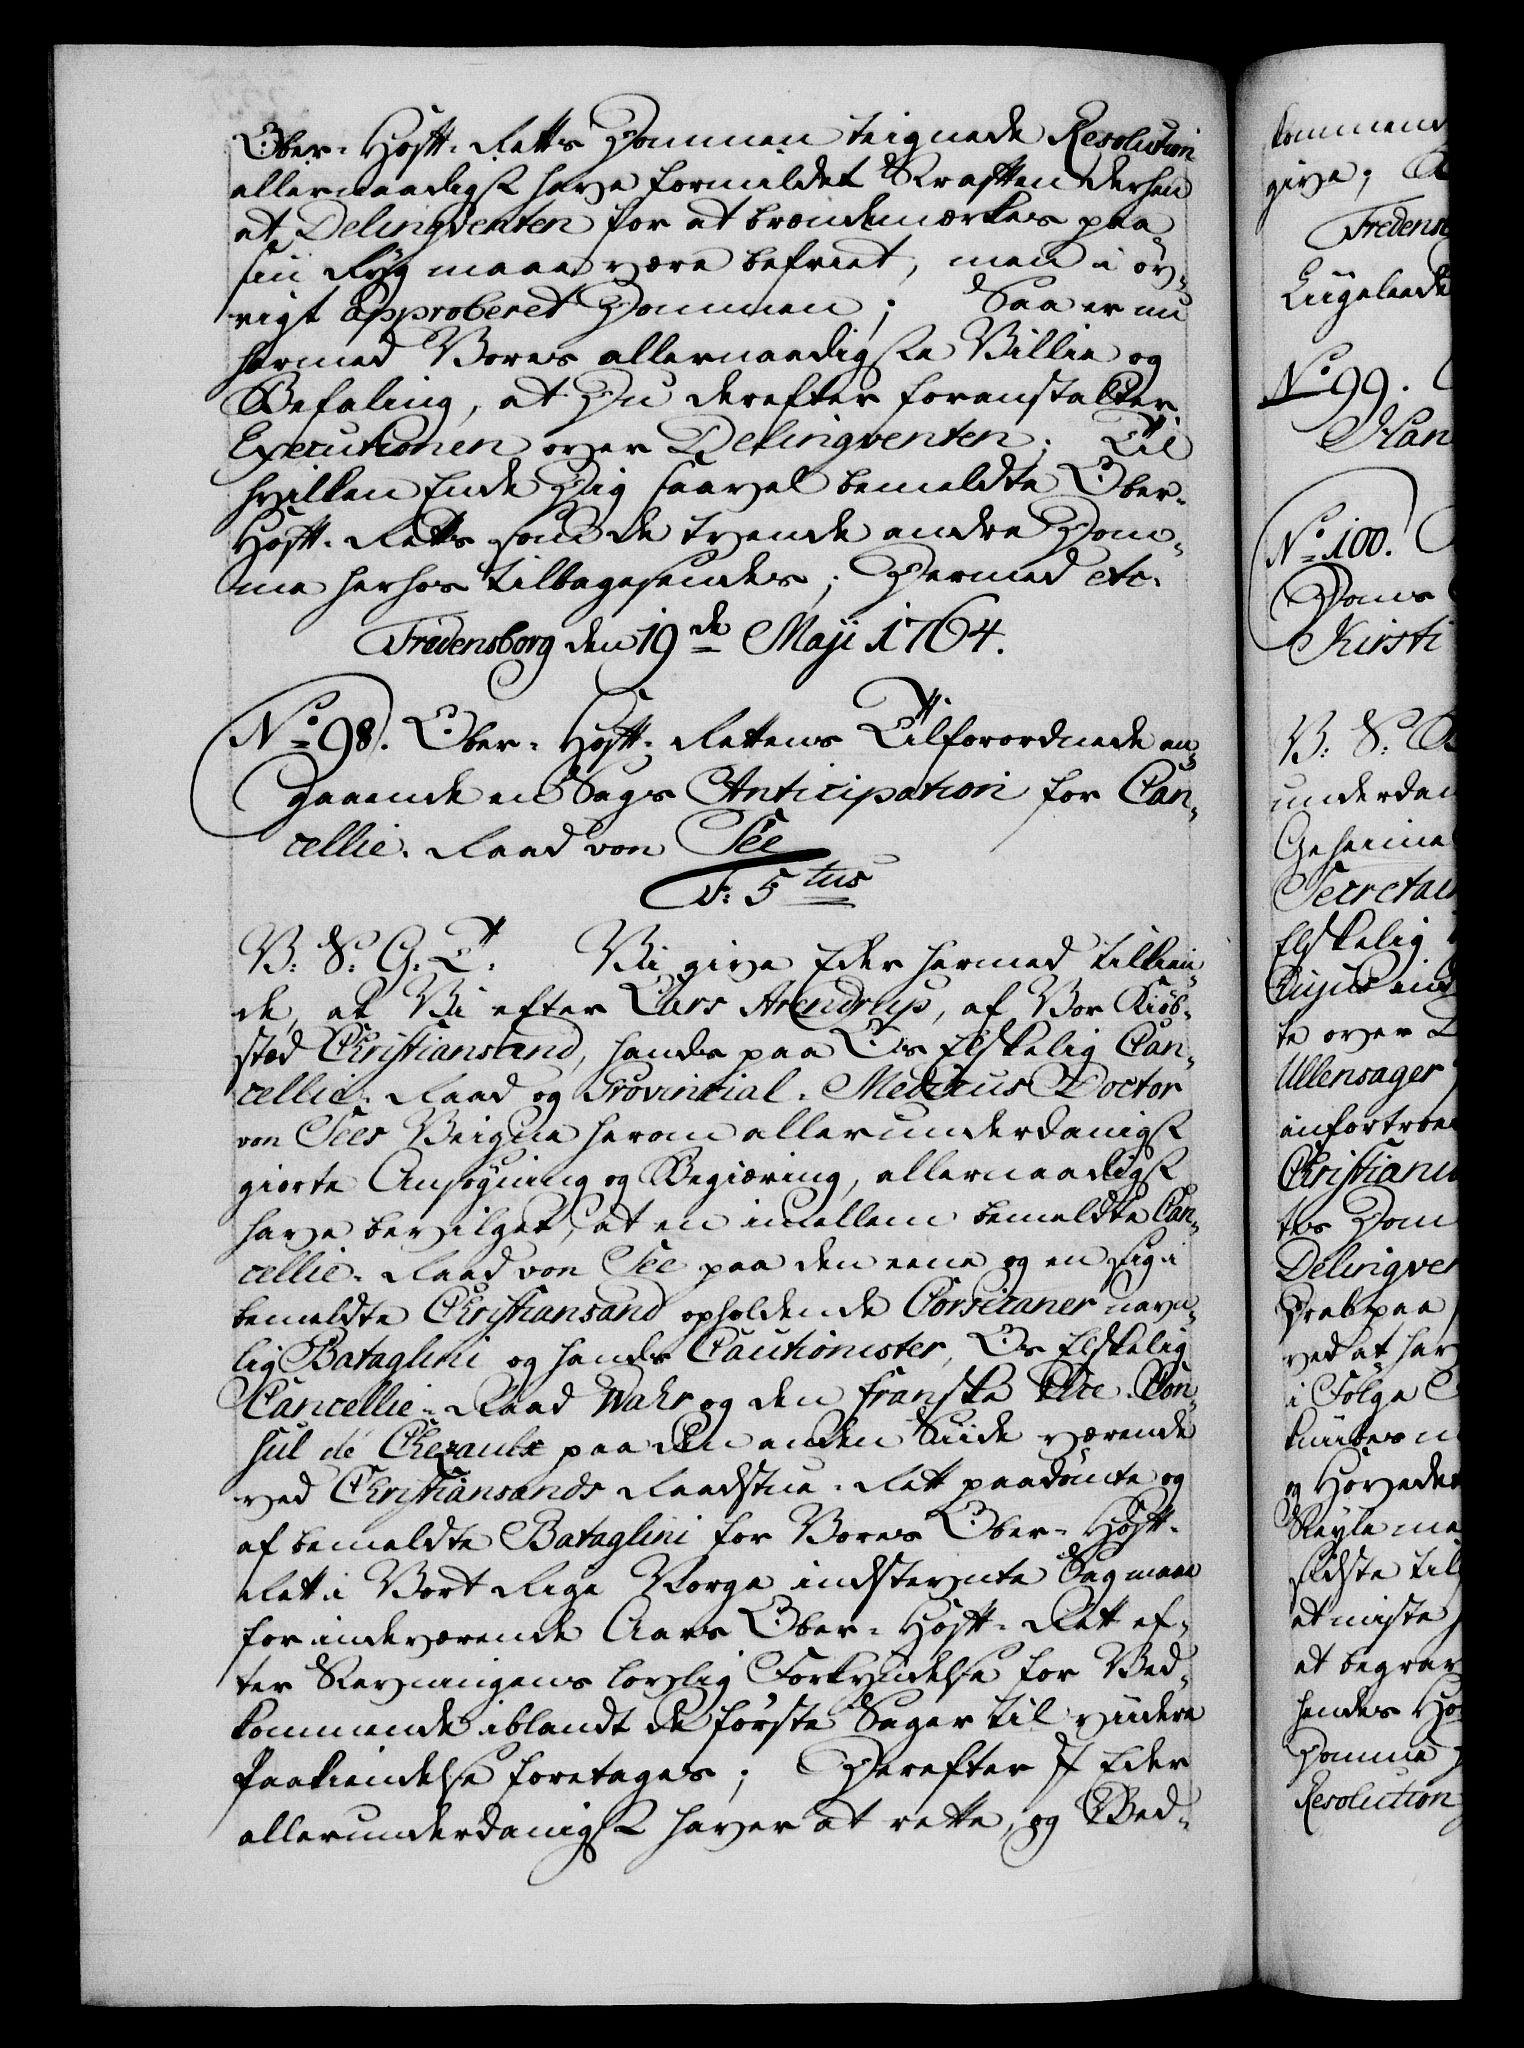 Ober-Hoff-Retts Dommen teignede Resolution
allernaadigst have formildet Straffen derhen
at Delinqventen for at brændemærkes paa
sin Ryg maae være befriet, men i öv-
rigt approberet Dommen; Saa er nu
hermed Vores allernaadigste Villie og
Befaling, at Du derefter foranstalter
Executionen over Delinqventen; Til
hvilken Ende Dig saavel bemeldte Ober-
Hoff-Retts som de tvende andre Dom-
me herhos tilbagesendes; Dermed etc.
Fredensborg den 19de Maji 1764.
No 98. Ober-Hoff-Rettens Tilforordnede an-
gaaende en Sags Anticipation for Can-
cellie-Raad von See
F: 5tus
V: S: G: T: Vi give Eder hermed tilkien-
de, at Vi efter Lars Arendrup, af Vor Kiöb-
stæd Christiansand, hands paa Os Elskelig Can-
cellie-Raad og Provincial-Medicus Doctor
von Sees Veigne herom allerunderdanigst
giorte Ansögning og Begiæring, allernaadigst
have bevilget, at en imellem bemeldte Can-
cellie-Raad von See paa den eene og en sig i
bemeldte Christiansand opholdende Corsicaner navn-
lig Bataglini og hands Cautionister, Os Elskelig
Cancellie-Raad Wahr og den franske Vice-Con-
sul de Chezaulx paa den anden Siide værende
ved Christiansands Raadstue-Rett paadömte og
af bemeldte Bataglini for Vores Ober-Hoff-
Rett i Vort Rige Norge indstevnte Sag maae
for indeværende Aars Ober-Hoff-Rett ef-
ter Stevningens lovlig Forkyndelse for Ved-
kommende iblandt de förste Sager til viidere
Paakiendelse foretages; Derefter I Eder
allerunderdanigst haver at rette, og Ved-
kommend
give;
Fredens
Liigelaade
No 99.
No 100.
Doms
Kirsti
V: S:
underdan
Geheime
Secretai
Elskelig
te over
Ullensager
anfortroe
Christian
tts Dom
Delinqven
Drab paa
ved at hav
i Fölge
og Hovedet
Steyle me
sidste til
at miste
at begrav
hendes Ho
Domme
Resolution